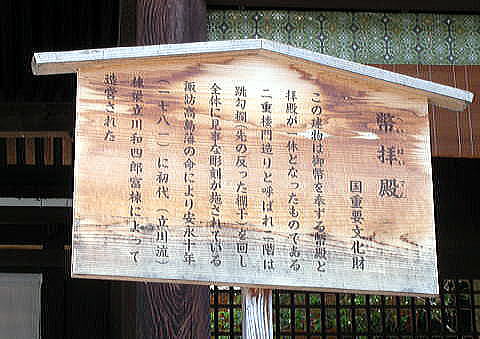 幣拝殿
へいはいでん
国重要文化財
この建物は御幣を奉ずる幣殿と
拝殿が一体となったものである
二重楼門造りと呼ばれ二階は
跳勾欄(先の反った欄干)を回し
全体に見事な彫刻が施されている
諏訪高島藩の命により安永十年
(一七八一)に初代(立川流)
棟梁立川和四郎富棟によって
造営された